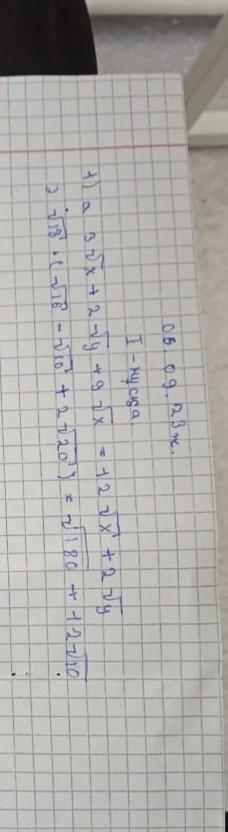 06.09.23ж.
I-нұсқа
1) a 3√x + 2√y + 9√x = 12√x + 2√y
2 √18 · (√16 - √10 + 2√20) = √180 + 12√10